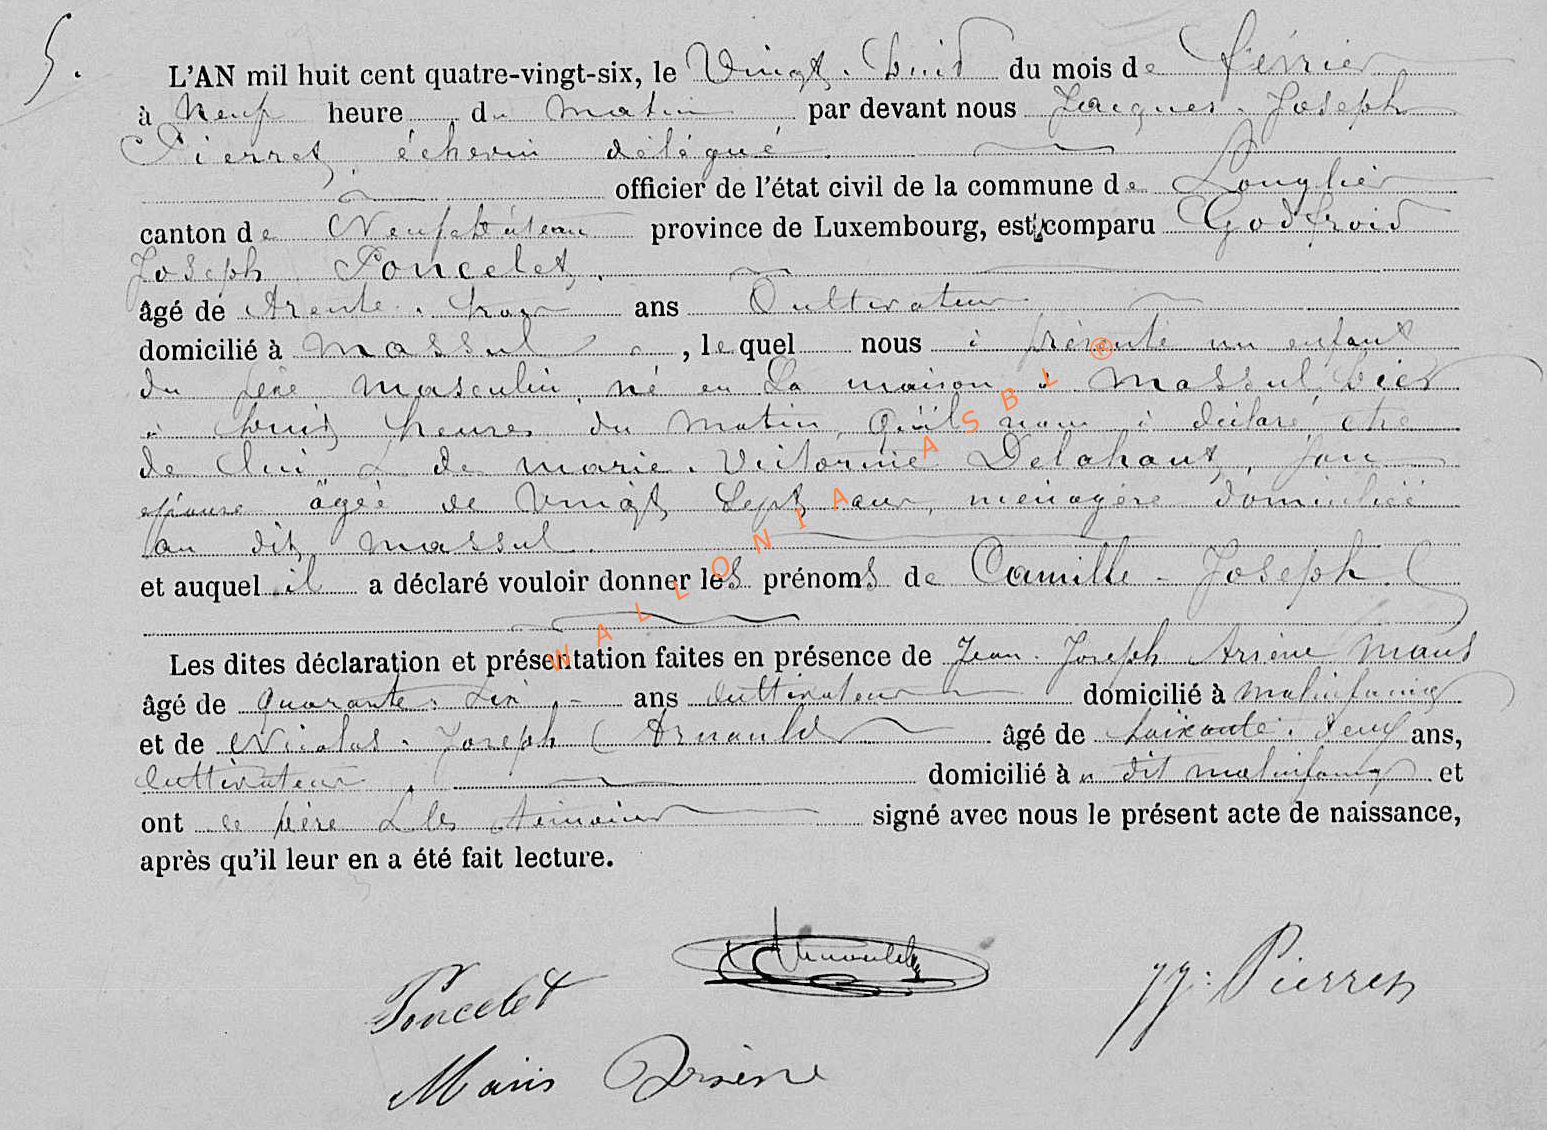 5.
L'AN mil huit cent quatre-vingt-six, le Vingt-huit du mois de février
à Neuf heure du matin par devant nous Jacques-Joseph
Pierret, échevin délégué.
officier de l'état civil de la commune de Longlier
canton de Neufchâteau province de Luxembourg, est comparu Godfroid
Joseph Poncelet,
âgé de trente-trois ans Cultivateur
domicilié à Massul, lequel nous à présenté un enfant
du sexe masculin, né en sa maison à Massul, hier
à huit heures du matin, qu'il nous à déclaré être
de lui & de Marie-Victorine Delahaut, son
épouse âgée de vingt sept ans, ménagère domiciliée
au dit Massul.
et auquel il a déclaré vouloir donner les prénoms de Camille-Joseph
Les dites déclaration et présentation faites en présence de Jean-Joseph Arsène Maus
âgé de quarante-six ans cultivateur domicilié à Molinfaing
et de Nicolas-Joseph Arnould âgé de soixante-neuf ans,
cultivateur domicilié à u dit Molinfaing et
ont le père & les témoins signé avec nous le présent acte de naissance,
après qu'il leur en a été fait lecture.
Arnould
Poncelet
JJ: Pierret
Arsène
WALLONIA ASBL ®